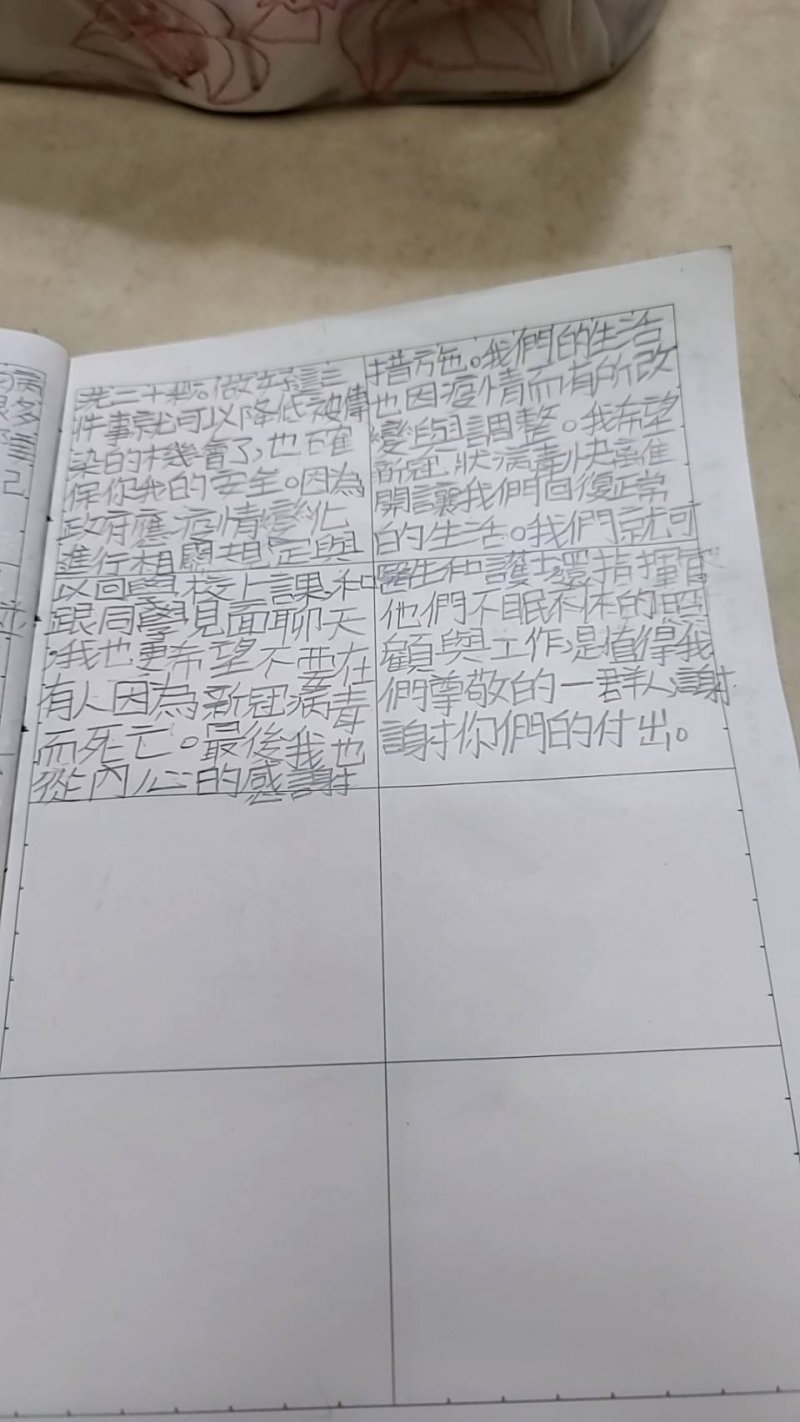 洗三十秒。做好這三
件事就可以降低被傳
染的機會了,也確
保你我的安全。因為
政府應疫情變化
進行相關規定與
措施。我們的生活
也因疫情而有所改
變與調整。我希望
新冠狀病毒快離
開讓我們回復正常
的生活。我們就可
以回學校上課,和
跟同學見面聊天
,我也更希望不要在
有人因為新冠病毒
而死亡。最後我也
從內心的感謝
醫生和護士還指揮官
他們不眠不休的照
顧與工作,是值得我
們尊敬的一群人,謝
謝你們的付出。